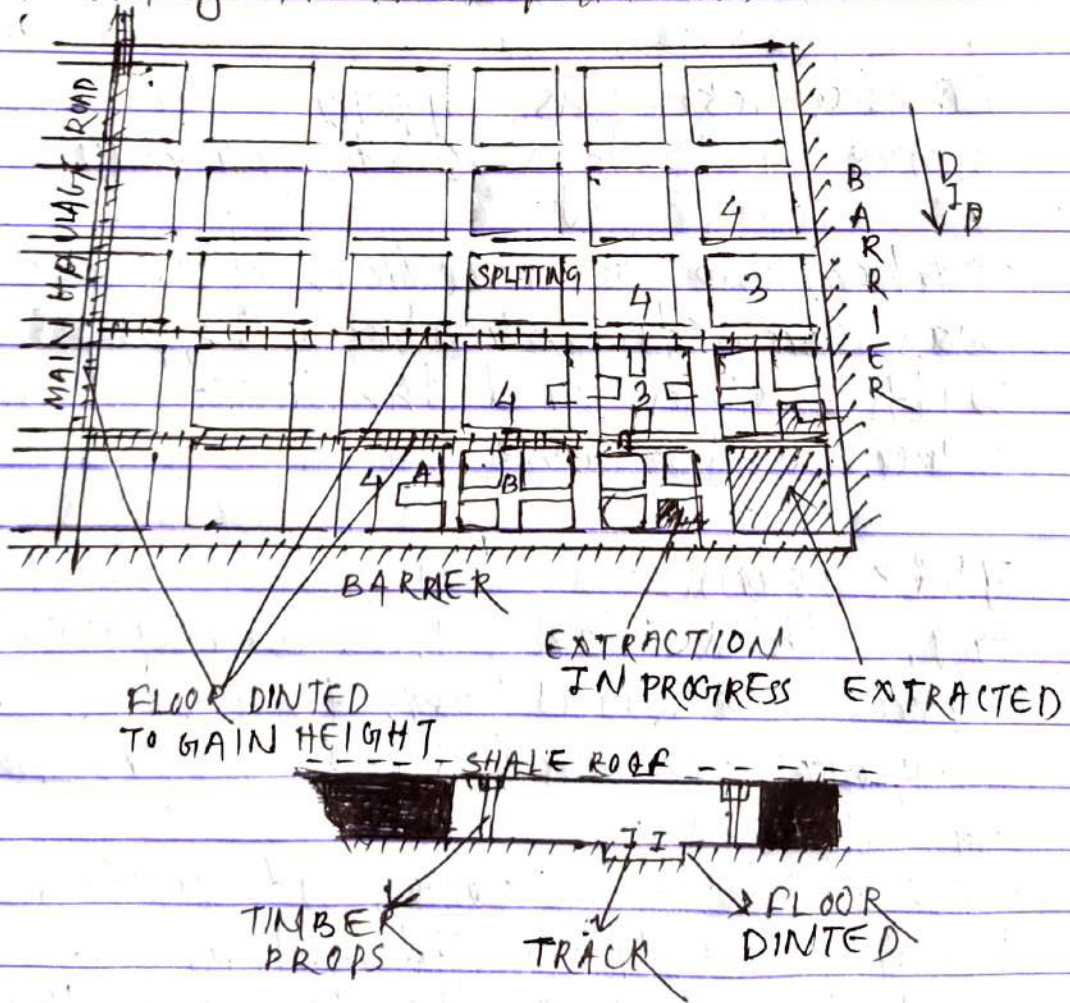 MAIN HAULAGE ROAD
DIP
BARRIER
4
SPLITTING
4
3
4
3
4
A
B
BARRIER
EXTRACTION
IN PROGRESS
EXTRACTED
FLOOR DINTED
TO GAIN HEIGHT
SHALE ROOF
TIMBER
PROPS
TRACK
FLOOR
DINTED